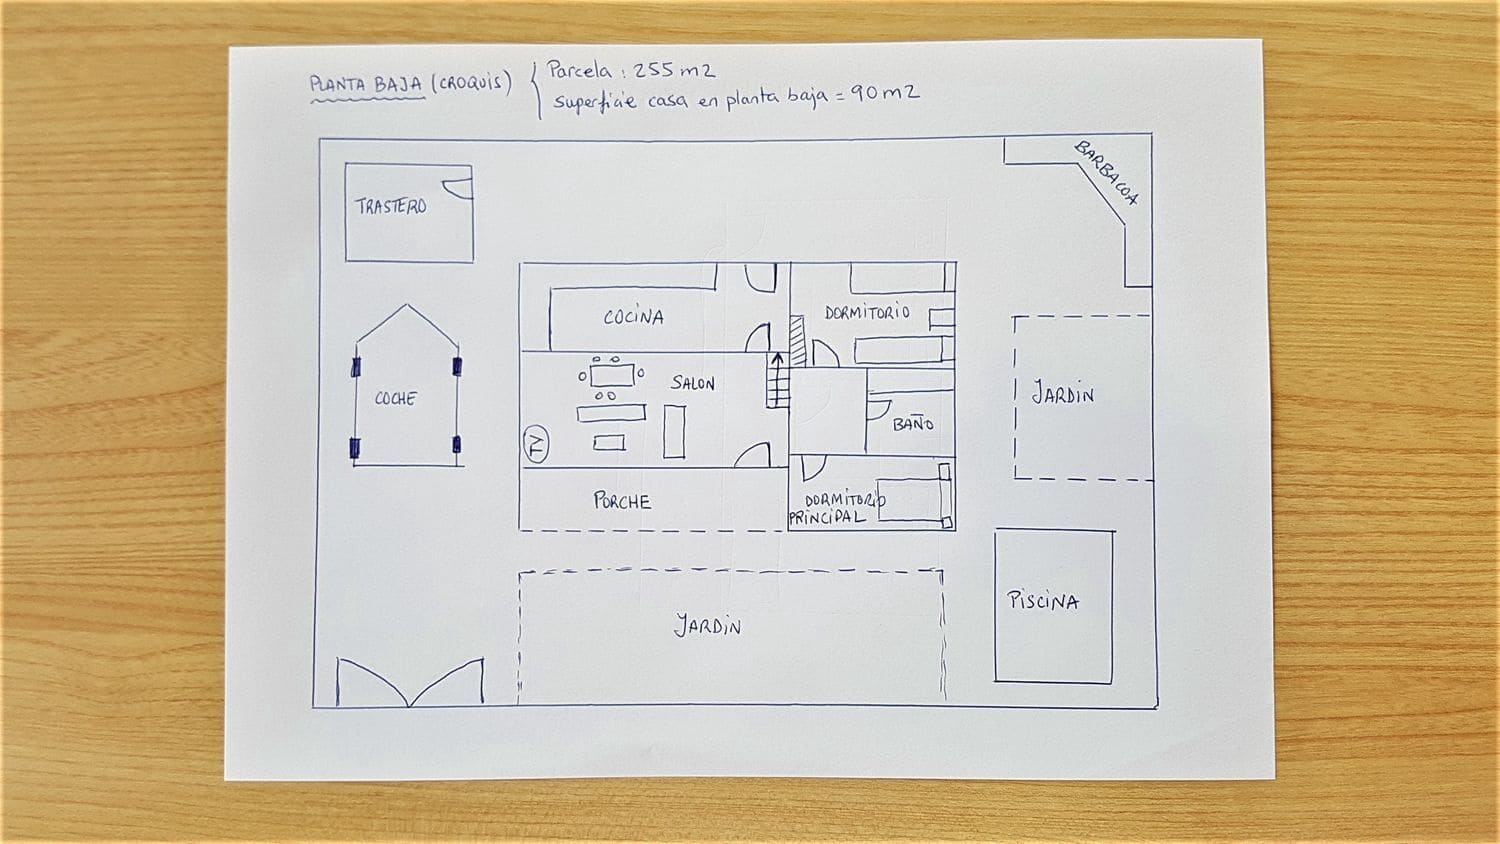 PLANTA BAJA (CROQUIS)
Parcela : 255 m2
Superficie casa en planta baja = 90 m2
BARBACOA
TRASTERO
COCINA
DORMITORIO
COCHE
SALON
JARDIN
BAÑO
TV
PORCHE
DORMITORIO
PRINCIPAL
JARDIN
PISCINA